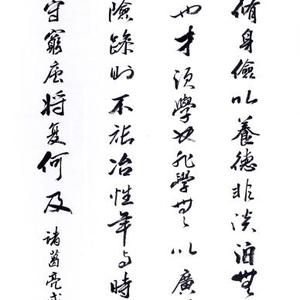 脩身儉以養德非淡泊無
也才須學也非學無以廣
險躁則不能冶性年与時
守窮廬将复何及諸葛亮